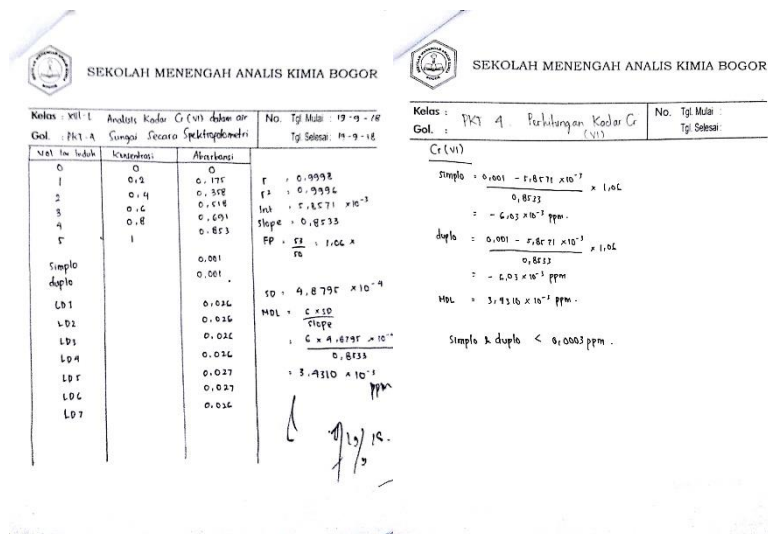 SEKOLAH MENENGAH ANALIS KIMIA BOGOR
Kelas : XIII-1 Analisis Kadar Cr (VI) dalam air No. Tgl. Mulai : 19-9-18
Gol. : PKT-4 Sungai Secara Spektrofotometri Tgl. Selesai : 19-9-18
Vol lar Induk Konsentrasi Absorbansi
0 0 0
1 0,2 0,175
2 0,4 0,358
3 0,6 0,518
4 0,8 0,691
5 1 0.853
Simplo 0,001
duplo 0,001
LD1 0,026
LD2 0,026
LD3 0,026
LD4 0.026
LD5 0,027
LD6 0,027
LD7 0,026
r = 0,9998
r² = 0,9996
Int = 5,8571 x10⁻³
Slope = 0,8533
FP = 53/50 = 1,06 x
SD = 4,8795 x10⁻⁴
MDL = 6 x SD / slope
= 6 x 4,8795 x 10⁻⁴ / 0,8533
= 3,4310 x 10⁻³ ppm
SEKOLAH MENENGAH ANALIS KIMIA BOGOR
Kelas : PKT 4. Perhitungan Kadar Cr (VI) No. Tgl. Mulai :
Gol. : Tgl. Selesai :
Cr (VI)
Simplo = 0,001 - 5,8571 x10⁻³ / 0,8533 x 1,06
= - 6,03 x10⁻³ ppm.
duplo = 0,001 - 5,8571 x10⁻³ / 0,8533 x 1,06
= - 6,03 x10⁻³ ppm
MDL = 3,4310 x 10⁻³ ppm.
Simplo & duplo < 0,0003 ppm.